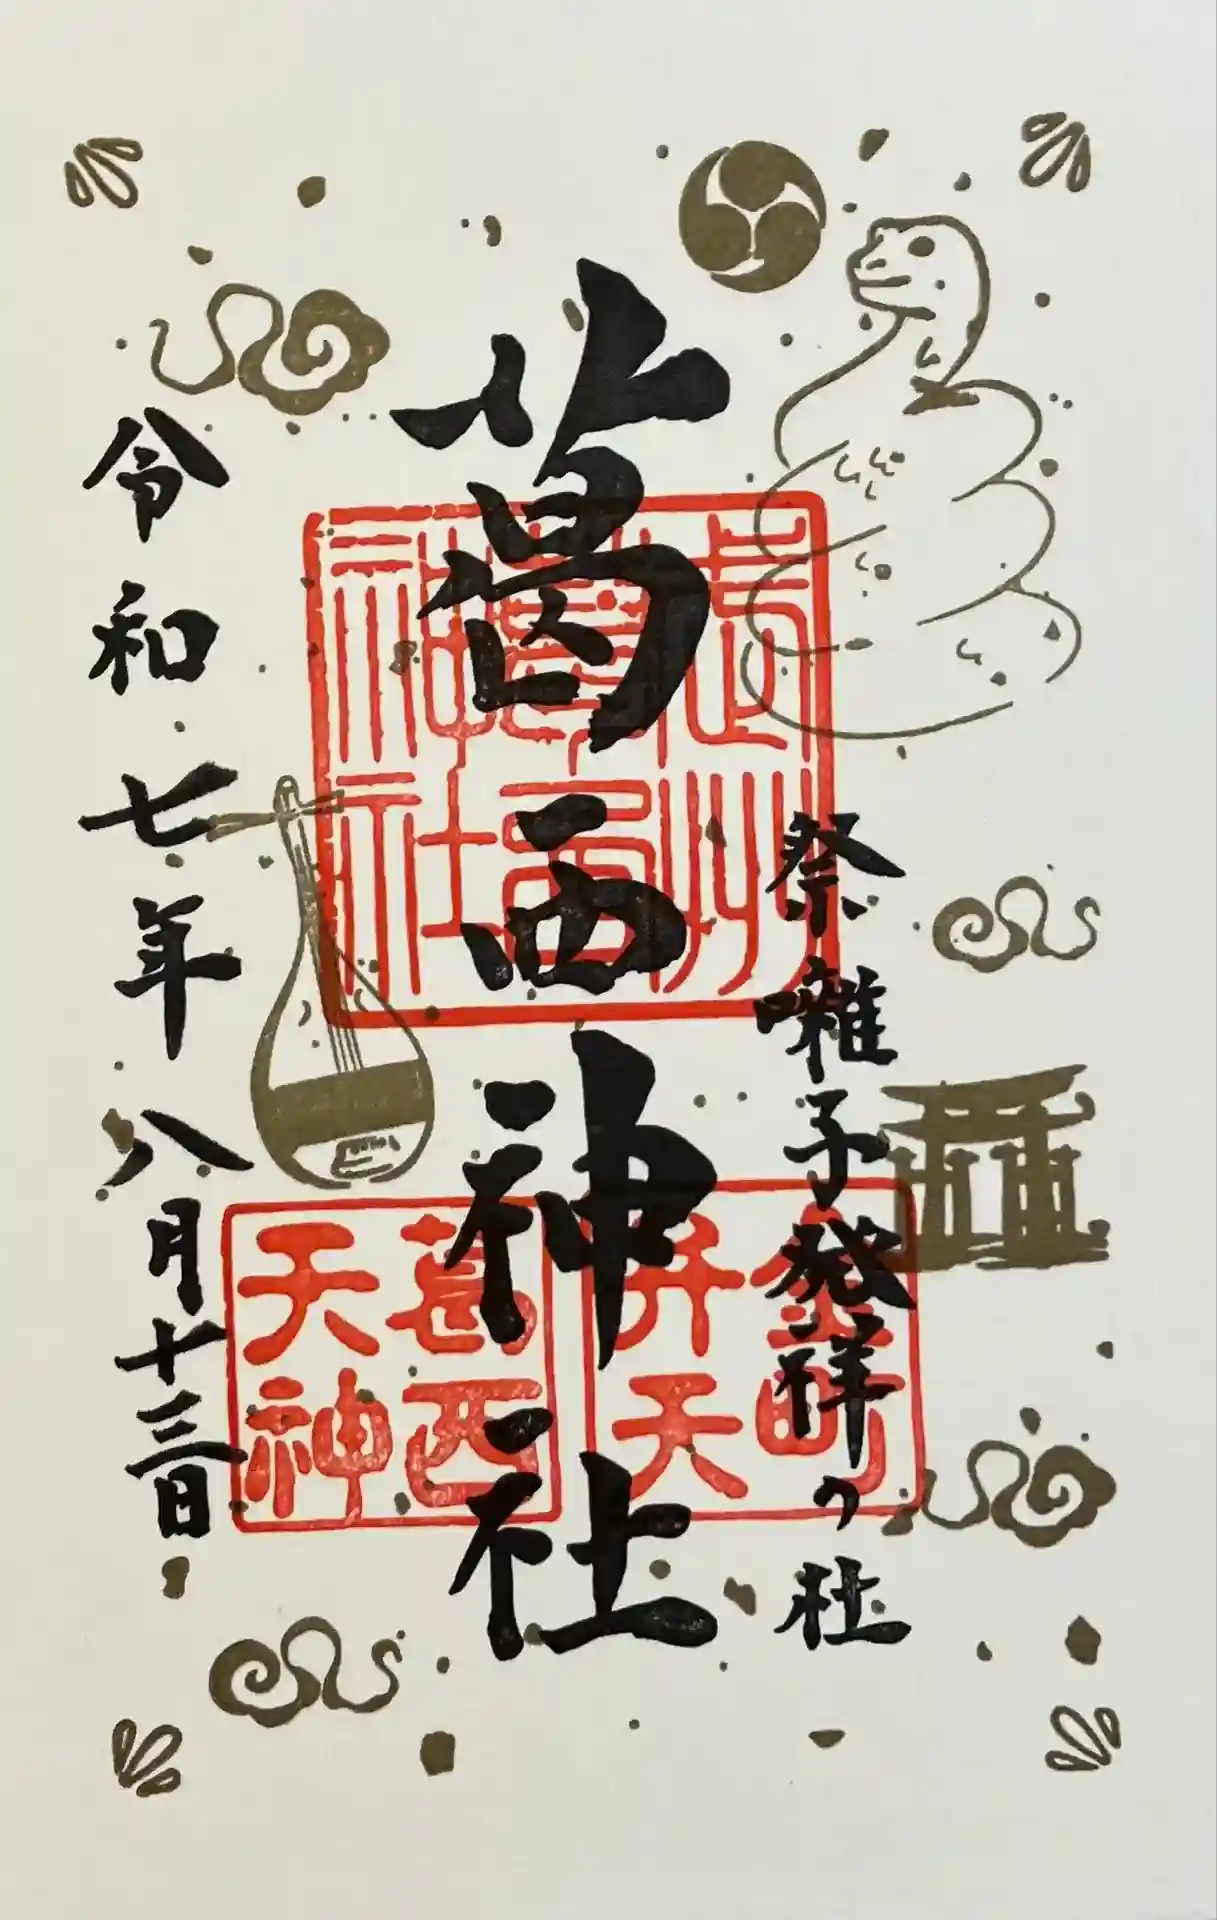 祭囃子発祥の杜
葛西神社
令和七年八月十三日
武州
葛西
神社
金町
弁天
葛西
天神